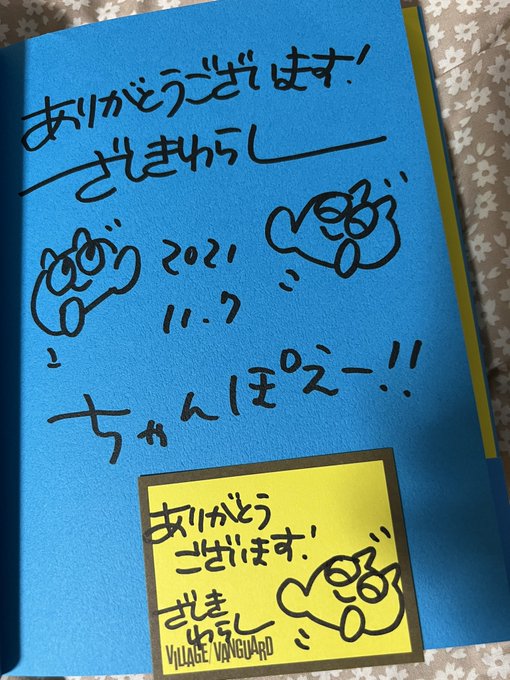 ありがとうございます!
ざしきわらし
2021
11.7
ちゃんぽえー!!
ありがとう
ございます!
ざしき
わらし
VILLAGE/VANGUARD